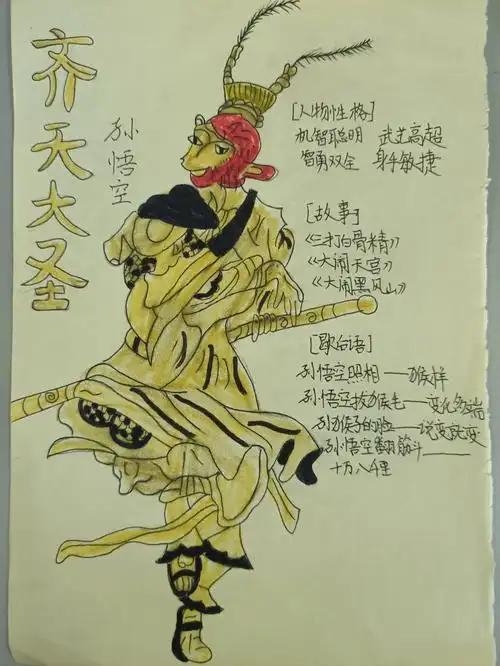 齐天大圣
孙悟空
[人物性格]
机智聪明 武艺高超
智勇双全 身手敏捷
[故事]
《三打白骨精》
《大闹天宫》
《大闹黑风山》
[歇后语]
孙悟空照相——猴样
孙悟空拔猴毛——变化多端
孙猴子的脸——说变就变
孙悟空翻筋斗——
十万八千里